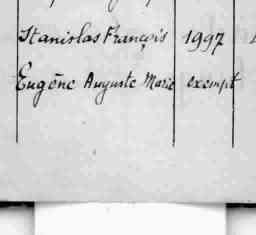 Stanislas François 1997
Eugène Auguste Marie exempt